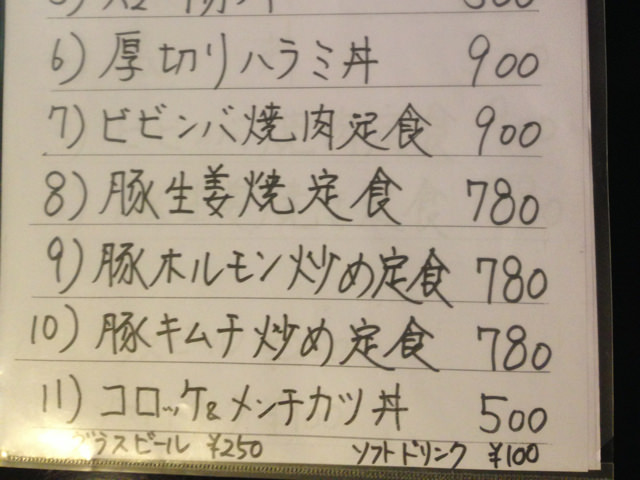 6) 厚切りハラミ丼 900
7) ビビンバ焼肉定食 900
8) 豚生姜焼定食 780
9) 豚ホルモン炒め定食 780
10) 豚キムチ炒め定食 780
11) コロッケ&メンチカツ丼 500
グラスビール ¥250 ソフトドリンク ¥100